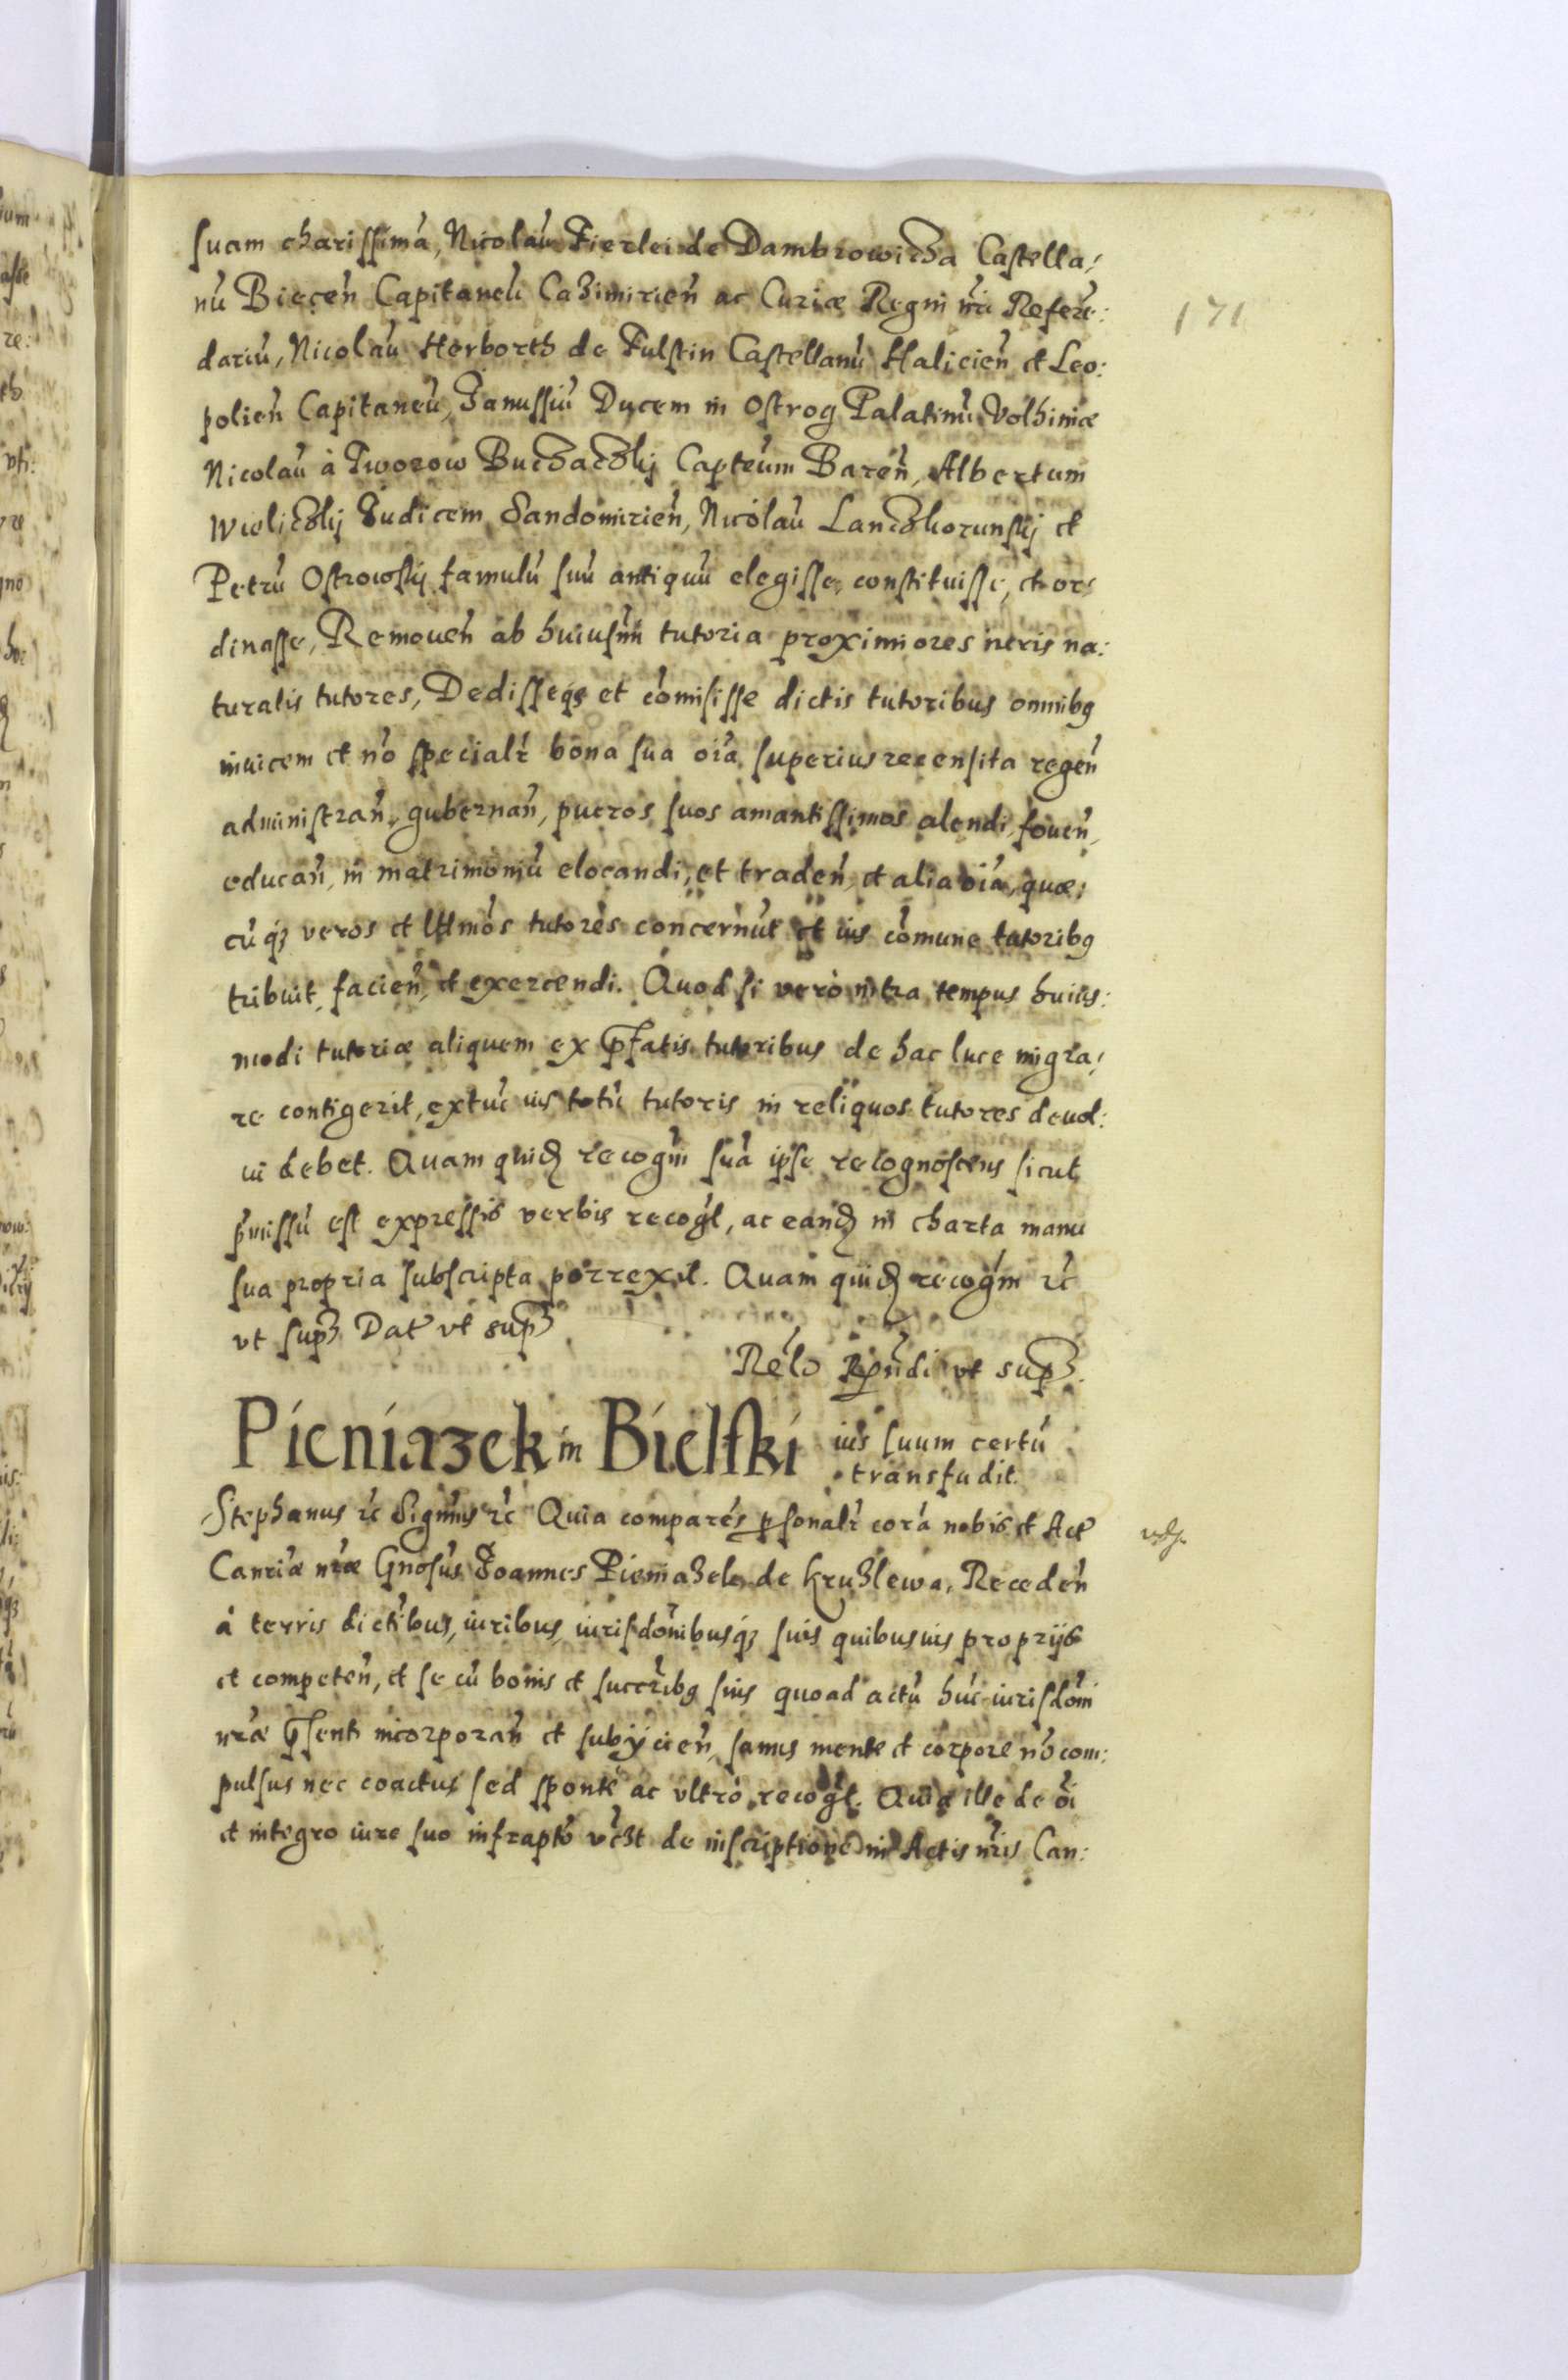 suam charissimā, Nicolaū Fierlei de Dambrowicza Castella/
nū Biecen̄ Capitaneū Cazimirien̄ ac Curiæ Regni nri Referē:
dariū, Nicolaū Herborth de Fulstin Castellanū Halicien̄ et Leo:
polien̄ Capitaneū, Janussiū Ducem in Ostrog Palatinū Volhiniæ
Nicolaū à Tworow Buczaczkij Capteum Baren̄, Albertum
Wieliczkij Judicem Sandomirien̄, Nicolaū Lanczkorunskij et
Petrū Ostrowskij famulū suū antiquū elegisse, constituisse, et or:
dinasse, Remouen̄ ab huiusm̄ tutoria proximiores iuris na:
turalis tutores, Dedisseq3 et cōmisisse dictis tutoribus omnib9
inuicem et nō specialr̄ bona sua oīa superius recensita regen̄
administran̄, gubernan̄, pueros suos amantissimos alendi, fouen̄,
educan̄, in matrimoniū elocandi, et traden̄, et alia oīa, quæ:
cūq3 veros et lttmōs tutores concernūt et ius cōmune tutorib9
tribuit, facien̄, et exercendi. Quod si verò intra tempus huius:
modi tutoriæ aliquem ex p̄fatis tutoribus de hac luce migra/
re contigerit, extūc ius totū tutoris in reliquos tutores deuol:
ui debet. Quam quid3 recogm̄ suā ipse recognoscens sicut
p̄missū est expressis verbis recogt, ac eand3 in charta manu
sua propria subscripta porrexit. Quam quid3 recogm̄ r̄c
vt sup3 Dat vt sup3
Relō R̄pn̄di vt sup3.
Pieniazek in Bielski ius suum certū
transfudit.
Stephanus r̄c Sigm̄s r̄c Quia comparēs p̱sonalr̄ corā nobis et Act
Canriæ nræ Gnosūs Joannes Pieniazek de Kruzlewa, Receden̄
à terris districtibus, iuribus, iurisdōnibusq3 suis quibusuis proprijs
et competen̄, et se cū bonis et succrib9 suis quoad actū hūc iurisdōni
nræ p̄senti incorporan̄ et subijcien̄, sanus mente et corpore nō com:
pulsus nec coactus sed sponte ac vltrò recogt. Quia ille de oī
et integro iure suo infrapto vt3t de inscriptione in Actis nris Can:
171